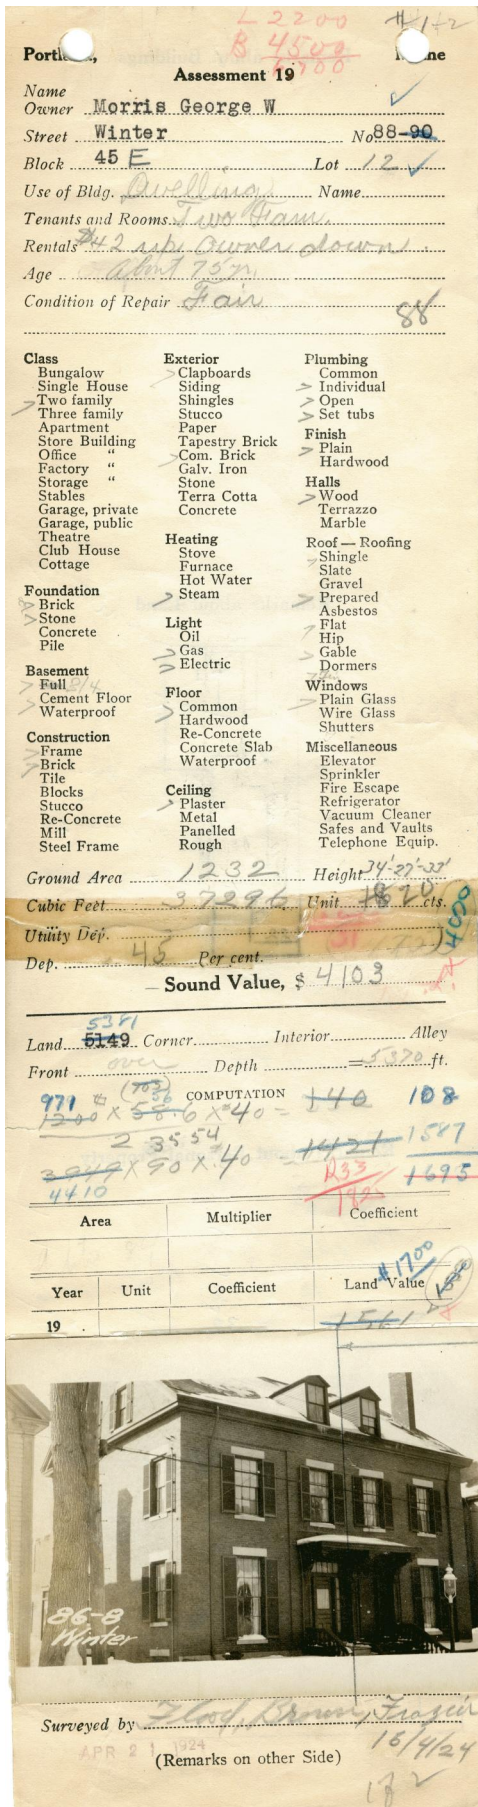 L 2200
B 4500
6700
#1-2
Portland, Maine
Assessment 19
Name
Owner Morris George W
Street Winter No 88-90
Block 45 E Lot 12
Use of Bldg. Dwelling Name
Tenants and Rooms Two Fam.
Rentals $42 up, owner down.
Age About 75 yr.
Condition of Repair Fair
88
Class
Bungalow
Single House
Two family
Three family
Apartment
Store Building
Office "
Factory "
Storage "
Stables
Garage, private
Garage, public
Theatre
Club House
Cottage
Foundation
Brick
Stone
Concrete
Pile
Basement
Full 3/4
Cement Floor
Waterproof
Construction
Frame
Brick
Tile
Blocks
Stucco
Re-Concrete
Mill
Steel Frame
Exterior
Clapboards
Siding
Shingles
Stucco
Paper
Tapestry Brick
Com. Brick
Galv. Iron
Stone
Terra Cotta
Concrete
Heating
Stove
Furnace
Hot Water
Steam
Light
Oil
Gas
Electric
Floor
Common
Hardwood
Re-Concrete
Concrete Slab
Waterproof
Ceiling
Plaster
Metal
Panelled
Rough
Plumbing
Common
Individual
Open
Set tubs
Finish
Plain
Hardwood
Halls
Wood
Terrazzo
Marble
Roof — Roofing
Shingle
Slate
Gravel
Prepared
Asbestos
Flat
Hip
Gable
Dormers
Windows
Plain Glass
Wire Glass
Shutters
Miscellaneous
Elevator
Sprinkler
Fire Escape
Refrigerator
Vacuum Cleaner
Safes and Vaults
Telephone Equip.
Ground Area 1232 Height 34'-27'-33'
Cubic Feet 37296 Unit 20 cts.
Utility Dep. 4000
Dep. 45 Per cent.
Sound Value, $ 4103
5381
Land 5149 Corner Interior Alley
Front over Depth = 5370 ft.
COMPUTATION
971 56
1200 x 586 x 40 = 140 108
2 35 54
3949 x 90 x .40 = 1421 1587
4410 1695
Area Multiplier Coefficient
$1700
Year Unit Coefficient Land Value
19 1561
86-8
Winter
Surveyed by Flood, Brown, Frazier
APR 21 1924
16/4/24
(Remarks on other Side)
1 of 2